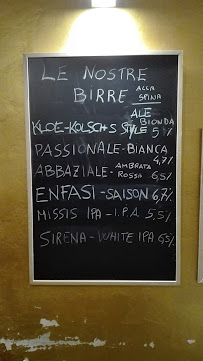 LE NOSTRE
BIRRE ALLA SPINA
ALE BIONDA
KLOE-KOLSCH STYLE 5%
PASSIONALE-BIANCA 4,7%
ABBAZIALE- AMBRATA ROSSA 6,5%
ENFASI-SAISON 6,7%
MISSIS IPA-I.P.A. 5,5%
SIRENA-WHITE IPA 6,5%